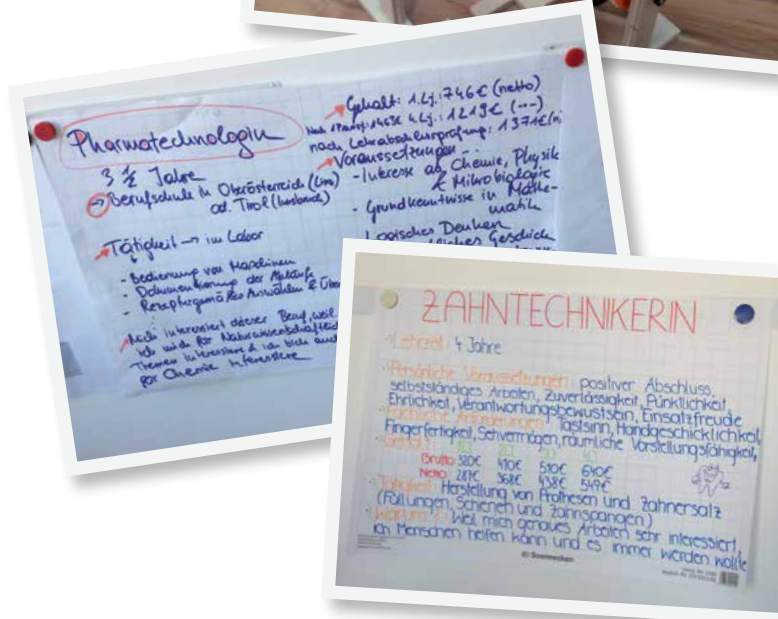 Pharmatechnologin
3 ½ Jahre
→ Berufsschule in Oberösterreich (Linz)
od. Tirol (Innsbruck)
Tätigkeit → im Labor
- Bedienung von Maschinen
- Dokumentierung der Abläufe
- Rezepturgemäßes Auswählen &
Mich interessiert dieser Beruf, weil
ich mich für
Themen interessiere & ich mich auch
für Chemie interessiere
Gehalt: 1.Lj.: 746€ (netto)
4.Lj.: 1219€
nach Lehrabschlussprüfung: 1371€
Voraussetzungen
- Interesse an Chemie, Physik
& Mikrobiologie
- Grundkenntnisse in Mathe-
matik
Logisches Denken
Geschick
ZAHNTECHNIKERIN
Lehrzeit: 4 Jahre
Persönliche Voraussetzungen: positiver Abschluss,
selbstständiges Arbeiten, Zuverlässigkeit, Pünktlichkeit,
Ehrlichkeit, Verantwortungsbewustsein, Einsatzfreude
Fachliche Anforderungen: Tastsinn, Handgeschicklichkeit,
Fingerfertigkeit, Sehvermögen, räumliche Vorstellungsfähigkeit,
Gehalt:
Brutto: 320€ 410€ 510€ 640€
Netto: 287€ 368€ 438€ 549€
Tätigkeit: Herstellung von Prothesen und Zahnersatz
(Füllungen, Schienen und Zahnspangen)
Warum?: Weil mich genaues Arbeiten sehr interessiert,
ich Menschen helfen kann und es immer werden wollte
© Soennecken